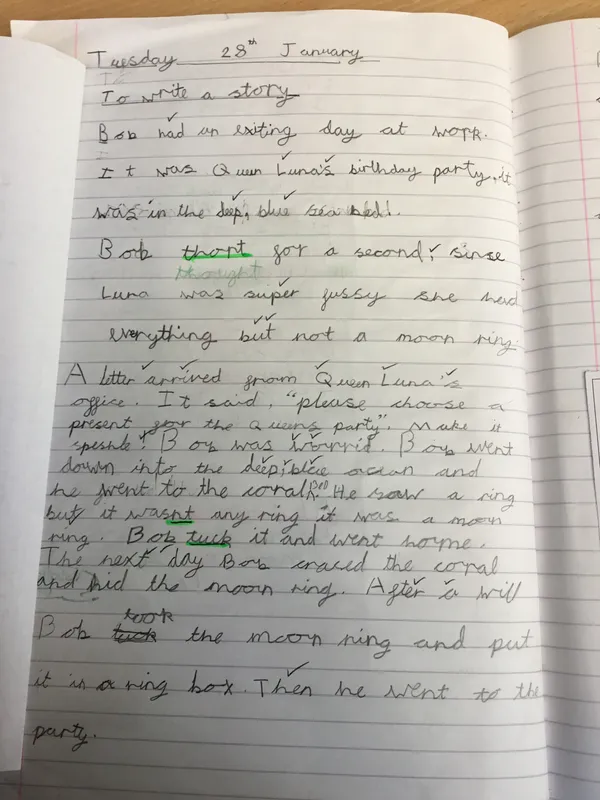 Tuesday 28th January
To write a story
Bob had an exiting day at work.
It was Queen Luna's birthday party, it
was in the deep, blue sea bed!.
Bob thort for a second, sinse
thought
Luna was super fussy she had
everything but not a moon ring.
A letter arrived from Queen Luna's
office. It said, "please choose a
present for the Queens party". Make it
speshle! Bob was worrid. Bob went
down into the deep, blue ocean and
he went to the coral bed. He saw a ring
but it wasnt any ring it was a moon
ring. Bob tuck it and went home.
The next day Bob craced the coral
and hid the moon ring. After a will
Bob tuck took the moon ring and put
it in a ring box. Then he went to the
party.